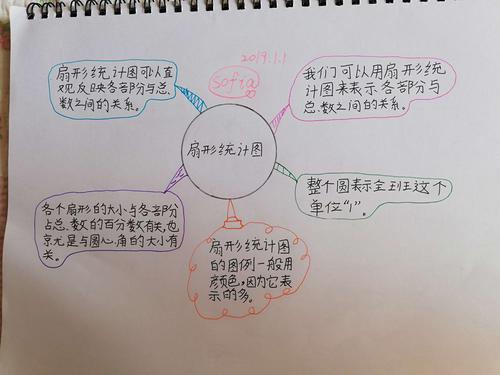 2019.1.1
sofia
扇形统计图可以直
观反映各部分与总
数之间的关系。
我们可以用扇形统
计图来表示各部分与
总数之间的关系。
扇形统计图
各个扇形的大小与各部分
占总数的百分数有关,也
就是与圆心角的大小有
关。
整个圆表示全班这个
单位“1”。
扇形统计图
的图例一般用
颜色,因为它表
示的多。